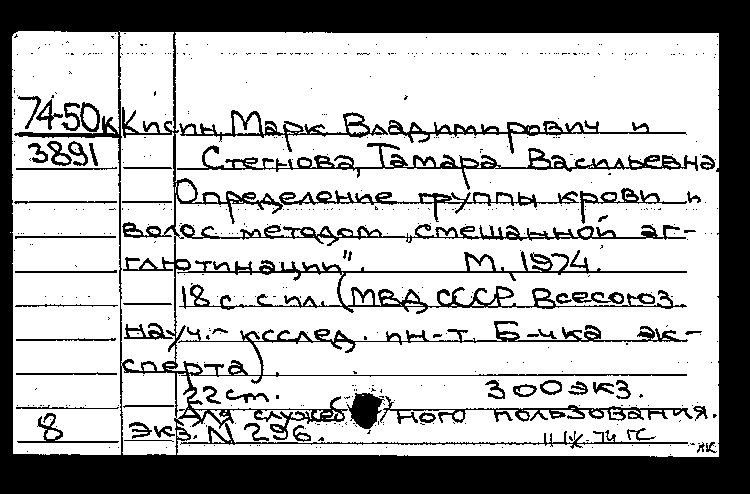 74-50к Кисин, Марк Владимирович и
3891 Стегнова, Тамара Васильевна.
Определение группы крови и
волос методом „смешанной аг-
глютинации". М., 1974.
18 с. с ил. (МВД СССР. Всесоюз.
науч.-исслед. ин-т. Б-чка эк-
сперта).
22 ст. 300 экз.
Для служебного пользования.
8 экз. N 296.